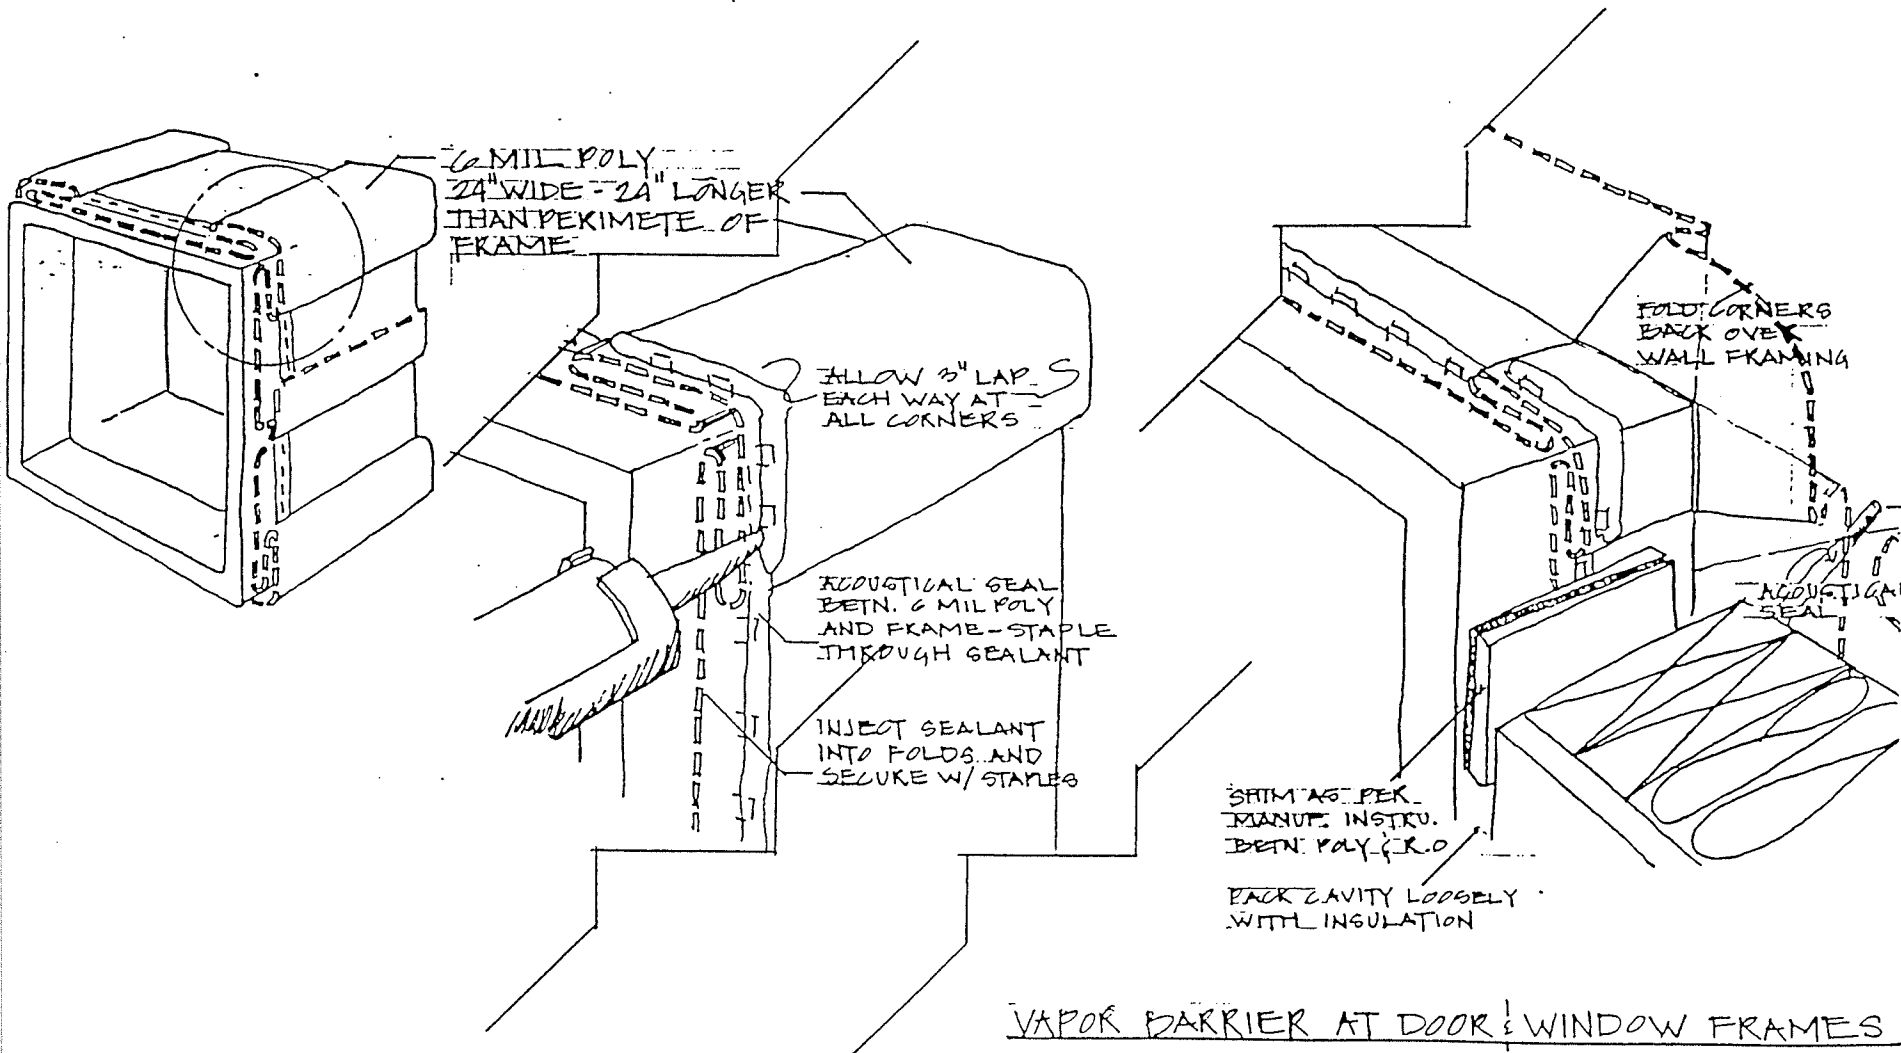 6 MIL POLY
24" WIDE - 24" LONGER
THAN PERIMETE OF
FRAME
ALLOW 3" LAP
EACH WAY AT
ALL CORNERS
ACOUSTICAL SEAL
BETN. 6 MIL POLY
AND FRAME - STAPLE
THROUGH SEALANT
INJECT SEALANT
INTO FOLDS AND
SECURE W/ STAPLES
FOLD CORNERS
BACK OVER
WALL FRAMING
ACOUSTICAL
SEAL
SHIM AS PER
MANUF. INSTRU.
BETN POLY & R.O
PACK CAVITY LOOSELY
WITH INSULATION
VAPOR BARRIER AT DOOR & WINDOW FRAMES